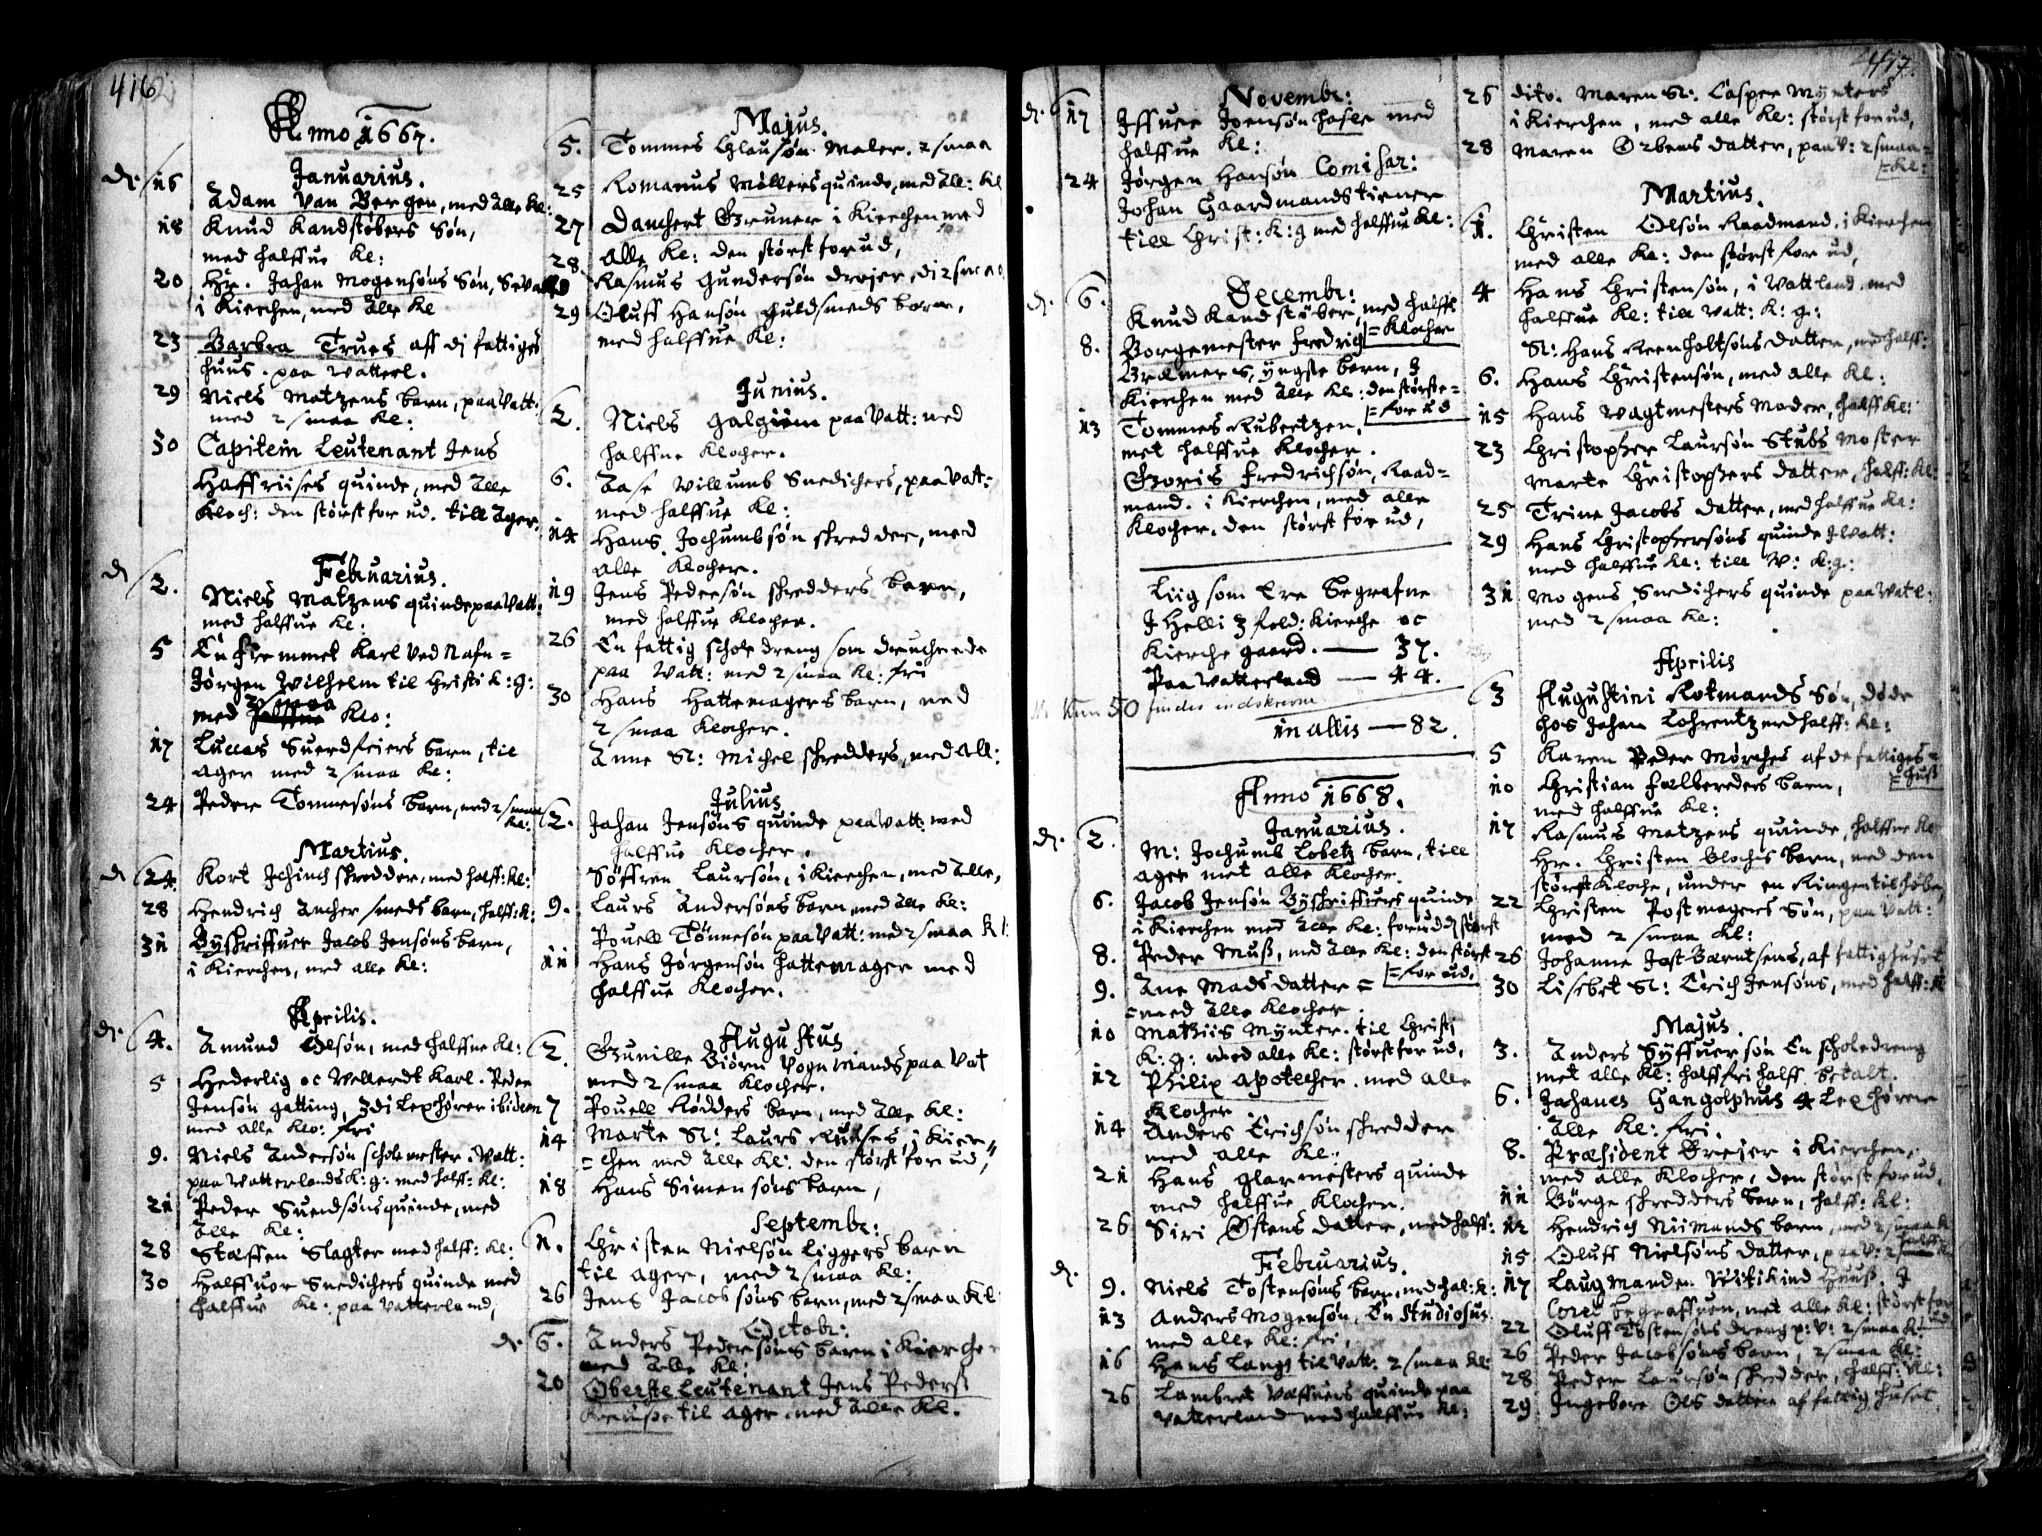 416
Anno 1667.
Januarius.
di 16 Adam Van Bergen, med Alle Kl:
18 Knud Kandstøbers Søn,
med halffue Kl:
20 Hr. Johan Mogensøns Søn,
i Kierchen, med Alle Kl
23 Barbra Trues aff di fattiges
huus. paa Watterl.
29 Niels Matzens barn, paa Vatt:
med 2 smaa Kl:
30 Capitein Leutenant Jens
Haffriises quinde, med Alle
Kloch: den størst for ud. till Ager.
Februarius.
di 2. Niels Matzens quinde paa Vatt:
med halffue Kl:
5 En fremmet Karl ved Nafn =
Jørgen Wilhelm til Christi K: g:
2 smaa
med halffue Klo:
17 Luccas Suerdfeiers barn, til
Ager med 2 smaa Kl:
24 Peder Tommesøns barn, med 2 smaa
Kl:
Martius.
di 24 Kort Jchinch skredder, med halff: Kl:
28 Hendrich Ancher smeds barn, halff: K:
31 Byskriffuer Jacob Jensøns barn,
i Kierchen, med alle Kl:
Aprilis.
di 4. Amund Olsøn, med halffue Kl:
5 Hederlig oc Wellerdt Karl. Peder
Jensøn gatting, 3di Lexhører ibidem
med alle Klo: fri
9. Niels Andersøn scholemester. Vatt:
paa Watterlands K: g: med halff: Kl:
21 Peder Suendsøns quinde, med
Alle Kl:
28 Steffen Slagter med halff: Kl:
30 Halffuor Snedichers quinde med
halffue Kl: paa Vatterland,
Majus.
5. Tommes Clausøn. Maler. 2 smaa
25 Romanus Møllers quinde, med All: Kl
27 Danchert Gruner i Kierchen med
Alle Kl: den størst for ud,
28 Rasmus Gundersøn drejer, di 2 smaa
29 Oluff Hansøn Guldsmeds barn,
med halffue Kl:
Junius.
2. Niels galgium paa Vatt: med
halffue Klocher.
6. Aase Willumb Snedichers, paa Vatt:
med halffue Kl:
14 Hans Jochumbsøn skredder, med
alle Klocher.
19 Jens Pedersøn skredders barn,
med halffue Klocher.
26 En fattig schole dreng som druchnede
paa Vatt: med 2 smaa Kl: fri
30 Hans Hattemagers barn, med
2 smaa Klocher.
Anne Sl: Michel skredders, med All:
Julius
2. Johan Jensøns quinde paa Vatt: med
halffue Klocher.
Søffren Laursøn, i Kierchen, med Alle,
9. Laurs Andersøns barn med Alle Kl:
Pouell Tønnesøn paa Vatt: med 2 smaa Kl:
11 Hans Jørgensøn hattemager med
halffue Klocher.
Augustus
2. Gunille Biørn Vognmands paa Vat
med 2 smaa Klocher.
7 Pouell Rødders barn, med Alle Kl:
14 Marte Sl: Laurs Ruuses, i Kier=
=chen med Alle Kl: den størst for ud,
18 Hans Simensøns barn,
Septembr:
11. Christen Nielsøn Liggers barn
til Ager, med 2 smaa Kl:
26 Jens Jacobsøns barn, med 2 smaa Kl:
Octobr:
di 6. Anders Pedersøns barn i Kierche
med Alle Kl:
20 Oberste Leutenant Jens Peders:
Kruuse til Ager. med Alle Kl.
417.
Novembr:
di 17 Iffuer Joensøn Hasle med
halffue Kl:
24 Jørgen Hansøn Comisar:
Johan Gaardmands tiener
till Christ: K: g med halffue Kl:
Decembr:
di 6. Knud Kandstøber med halffe
=Klocher
8. Borgemester Fredrig
Bræmers, yngste barn, I
Kierchen med Alle Kl: den største=
=for ud
13 Tommes Rubertzen,
met halffue Klocher.
Goris Fredrichsøn, Raad=
mand. i Kierchen, med alle
Klocher. den størst for ud,
Liig som Ere Begrafne
I Hellig 3 fold: Kierche oc
Kierche gaard. — 37.
Paa Watterland — 44.
Kun 50 findes indskrevne
in allis — 82.
Anno 1668.
Januarius.
di. 2. M: Jochumb Lobetz barn, till
Ager met alle Klocher.
6. Jacob Jensøn Byskriffuers quinde
i Kierchen med Alle Kl: for ud størst
8. Peder Muß, med Alle Kl: den størst
=for ud.
9. Ane Mads datter =
=med Alle Klocher.
10 Mathiis Mynter. til Christi
K: g: med alle Kl: størst for ud,
12 Philip Apotecher. med alle
Klocher
14 Anders Erichsøn skredder
med alle Kl:
21 Hans glarmesters quinde
med halffue Klocher.
26 Siri Østens datter, med halff:
Februarius.
di. 9. Niels Tostensøns barn, med hal: K:
13 Anders Mogensøn, En Studiosus
med alle Kl: fri,
16 Hans Lang, til Vatt: 2 smaa Kl:
26 Lambret Væffuers quinde paa
Vatterland med halffue Kl:
26 dito. Maren Sl: Casper Mynters
i Kierchen, med alle Kl: størst for ud,
28 Maren Orbens datter, paa V: 2 smaa=
=Kl:
Martius.
1. Christen Olsøn Raadmand, i Kierchen
med alle Kl: den størst for ud,
4 Hans Christensøn, i Vattland. med
halffue Kl: till Watt: K: g:
Sl: Hans Reenholtsøns datter, med halff:
6. Hans Christensøn, med alle Kl:
15 Hans Wagtmesters Moder, halff Kl:
23 Christopher Laursøn Stubs Moster
Marte Christophers datter, halff: Kl:
25 Trine Jacobs datter, med halffue Kl:
29 Hans Christophersøns quinde I Vatt:
med halffue Kl: till V: K: g:
31 Mogens Snedichers quinde paa Vatl:
med 2 smaa Kl:
Aprilis
3 Augustini Rotmands Søn, døde
hos Johan Lohrentz med halff: Kl:
5 Karen Peder Mørches af de fattiges=
=Huß
10 Christian Fælbereders barn,
med halffue Kl:
17 Rasmus Matzens quinde, halffue Kl
Hr. Christen Blochis barn, med den
størst Kloche, under en Ringen til hobe,
22 Christen Postmagers Søn, paa Vatt:
med 2 smaa Kl:
26 Johanne Jost Barntsens, af fattighuset
30 Lisebet Sl: Erich Jensøns, med halff: K
Majus.
3. Anders Syffuersøn En scholedreng
met alle Kl: halff fri halff betalt.
6. Johanes Gangolphus 4 Lexhører
Alle Kl: fri.
8. Præsident Dreier i Kierchen,
med alle Klocher, den størst for ud,
11 Børge skredders barn, halff: Kl:
12 Hendrich Niimands barn, med 2 smaa K
15 Oluff Nielsøns datter, paa V:
17 Laugmanden Witikind Huuß. I
Coret begraffuen, met alle Kl: størst for
ud
22 Oluff Tostensøns dreng p: V: 2 smaa K:
26 Peder Jacobsøns barn, 2 smaa Kl:
28 Peder Laursøn skredder, halff: Kl:
29 Ingebore Ols datter af fattig huset.